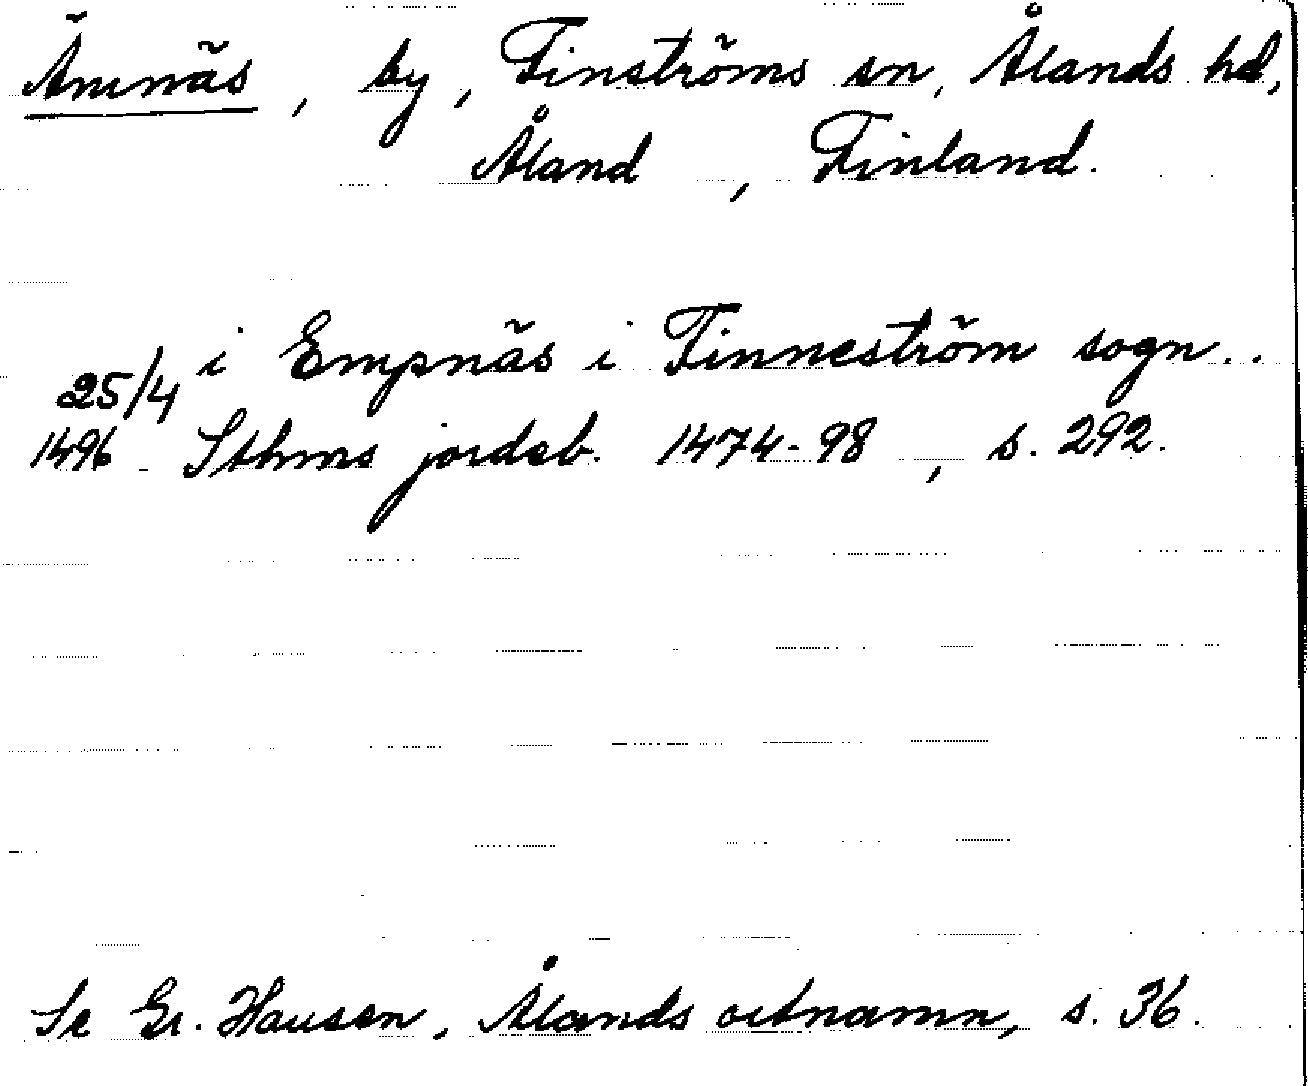 Ämnäs, by, Finströms sn, Ålands hd,
Åland, Finland.
25/4 i Empnäs i Finneström sogn..
1496 Sthms jordeb. 1474-98, s. 292.
Se Gr. Hausen, Ålands ortnamn, s. 36.